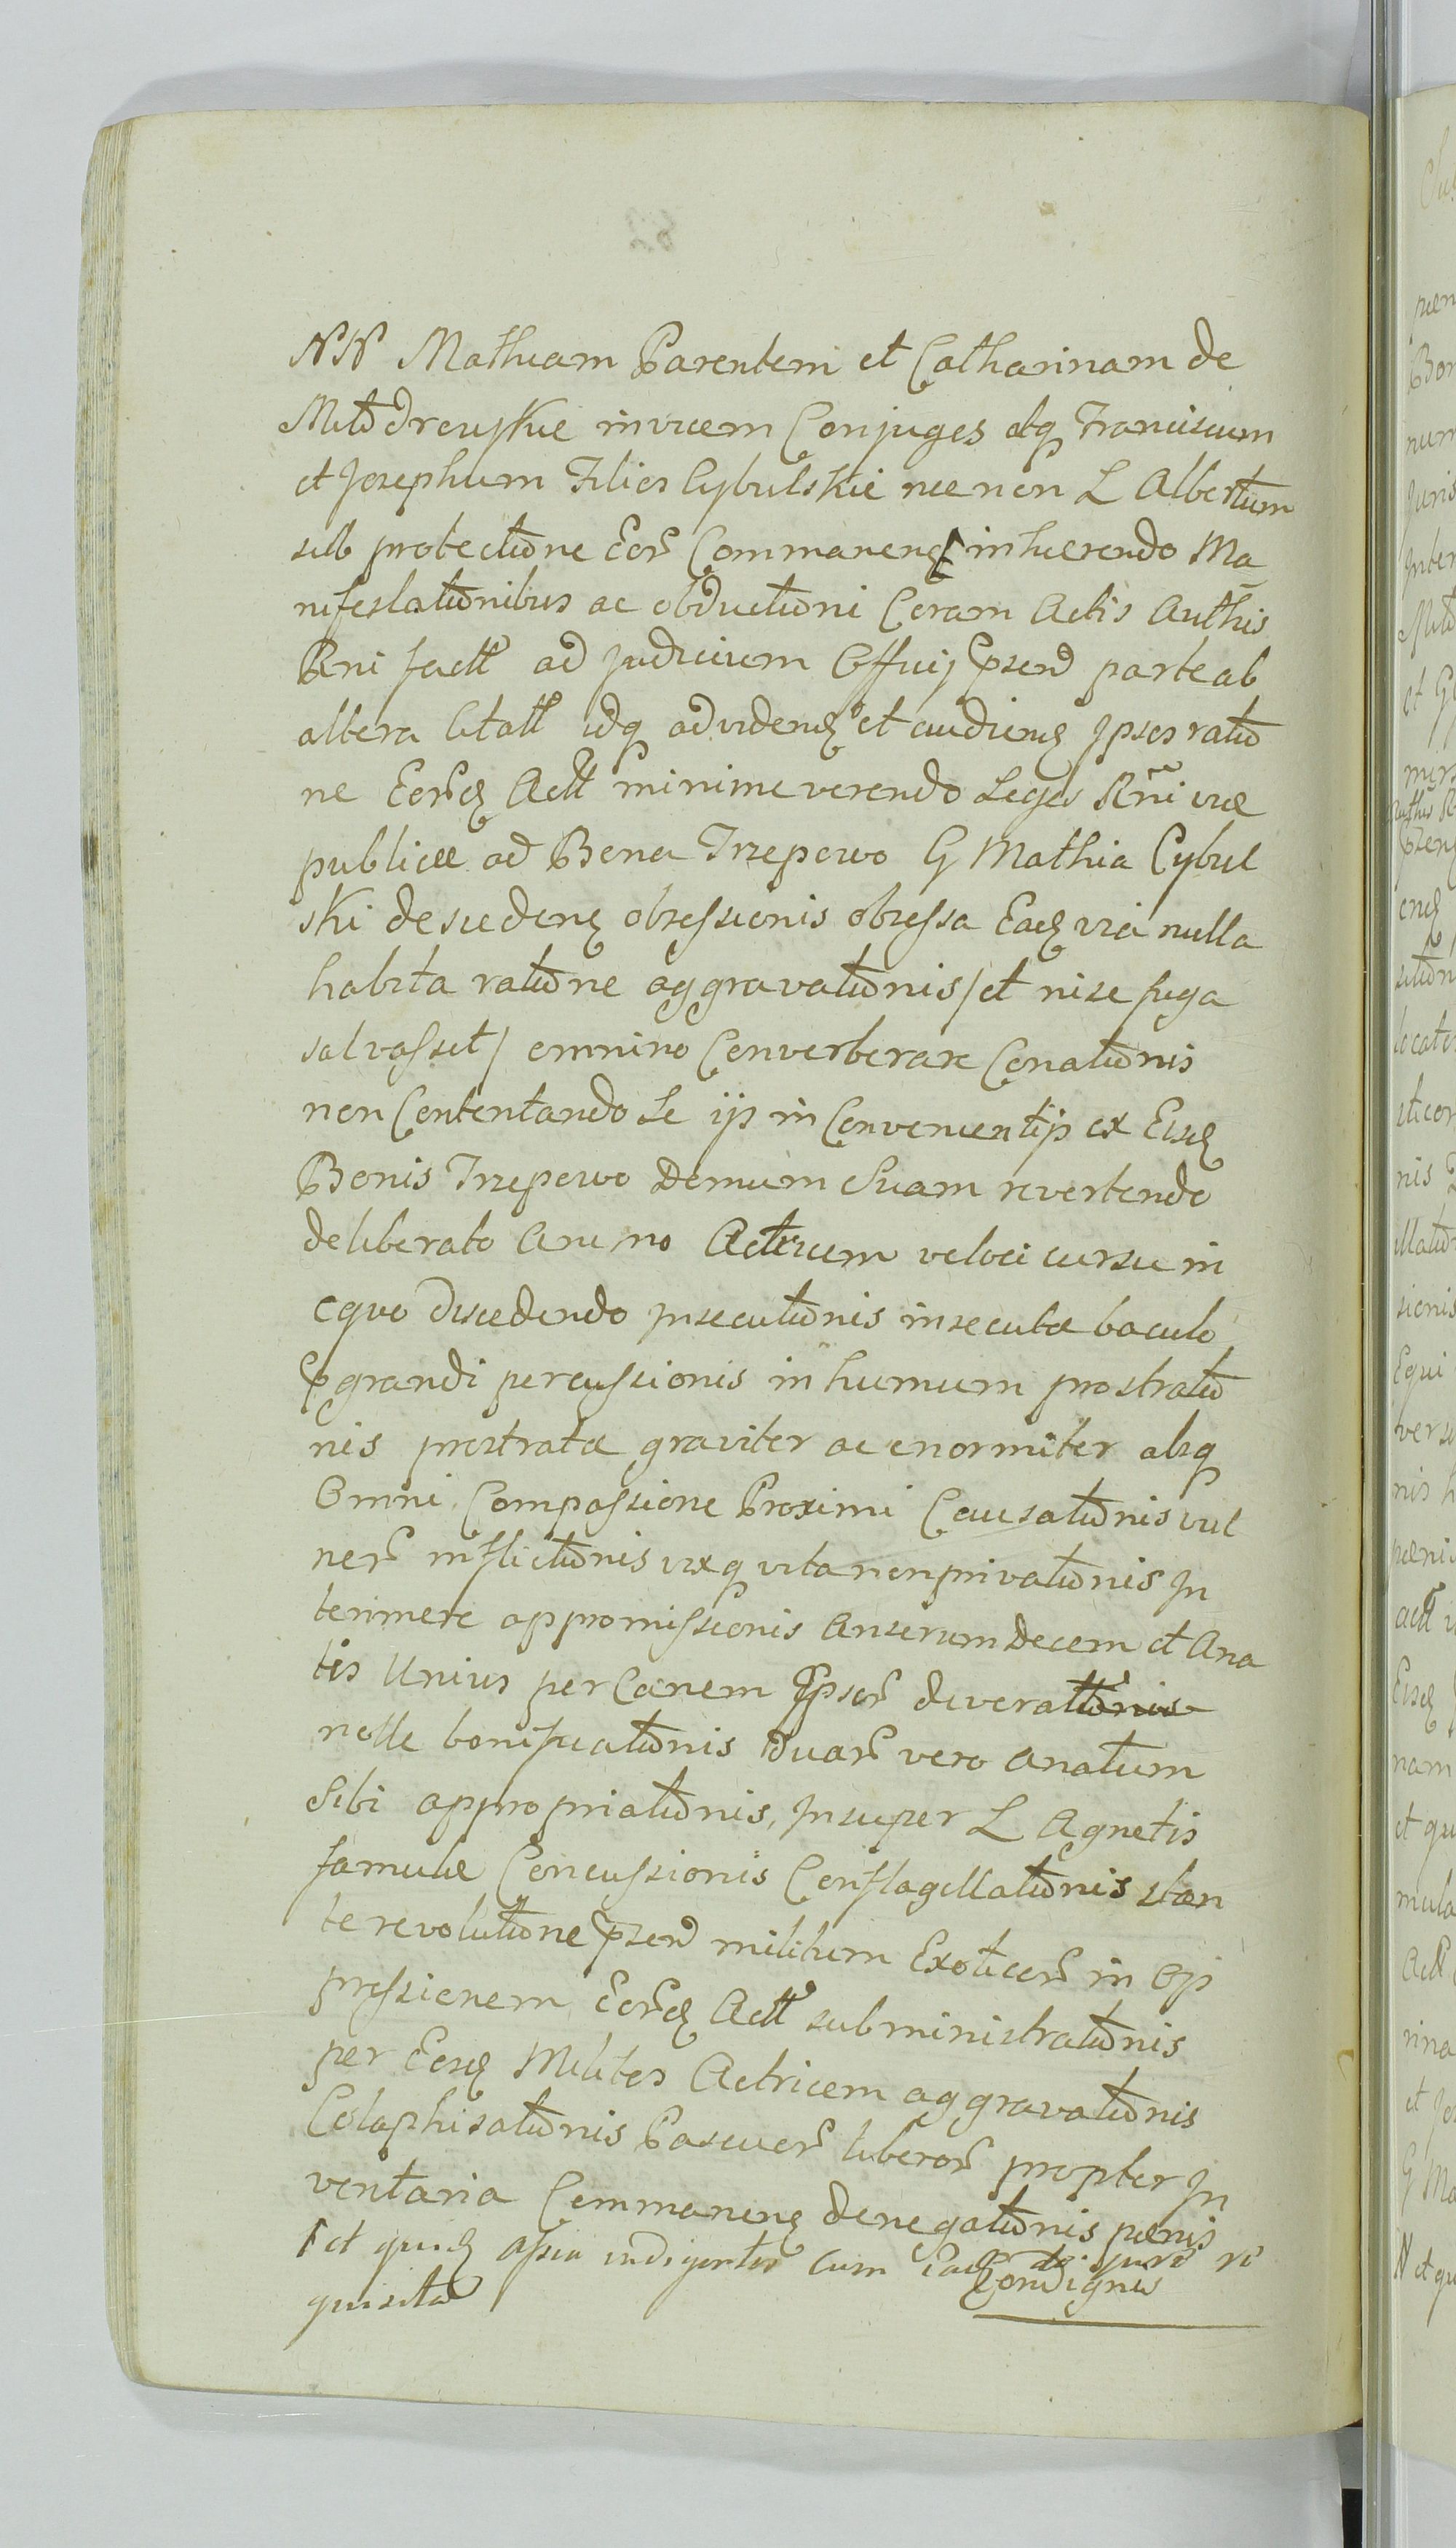 NN Mathiam Parentem et Catharinam de
Milodrouskie invicem Conjuges atq Franciscum
et Josephum Filios Cybulskie nec non L Albertum
sub protectione Eor Commanen inhaerendo Ma
nifestationibus ac obductioni Coram Actis Authis
Rni fact ad judicium Officij psend parte ab
altera Citatt idq ad videnq et audienq Ipsos ratio
ne Eorq Act minime verendo Leges Rni viae
publicae ad Bona Trzepowo G Mathia Cybul
ski desuedenq obsessionis obsessa Eadq via nulla
habita ratione aggravationis / et nise fuga
salvasset / omnino Converberare Conationis
non Contentando Se ijs in Convenientijs ex Eisdq
Bonis Trzepowo Domum Suam revertendo
deliberato Animo Actricem veloci cursu in
equo discedendo insecutionis insecutae baculo
pgrandi percussionis in humum prostratio
nis prostratae graviter ac enormiter absq
Omni Compassione Proximi Causationis vul
ner inflictionis vixq vita non privationis In
terimere appromissionis Anserum Decem et Ana
tis Unius per Canem Ipsor devorationis
nolle bonificationis duar vero Anatum
Sibi appropriationis, Insuper L Agnetis
famulae Concussionis Conflagellationis stan
te revolutione psend militum Exoticor in Op
pressionem Eorq Act subministrationis
per Eosq Milites Actricem aggravationis
Colaphisationis Pascuor liberor propter In
ventaria Commanenq denegationis paenis
Condignis
et quidq assia indigentes Cum de jure re
quisita